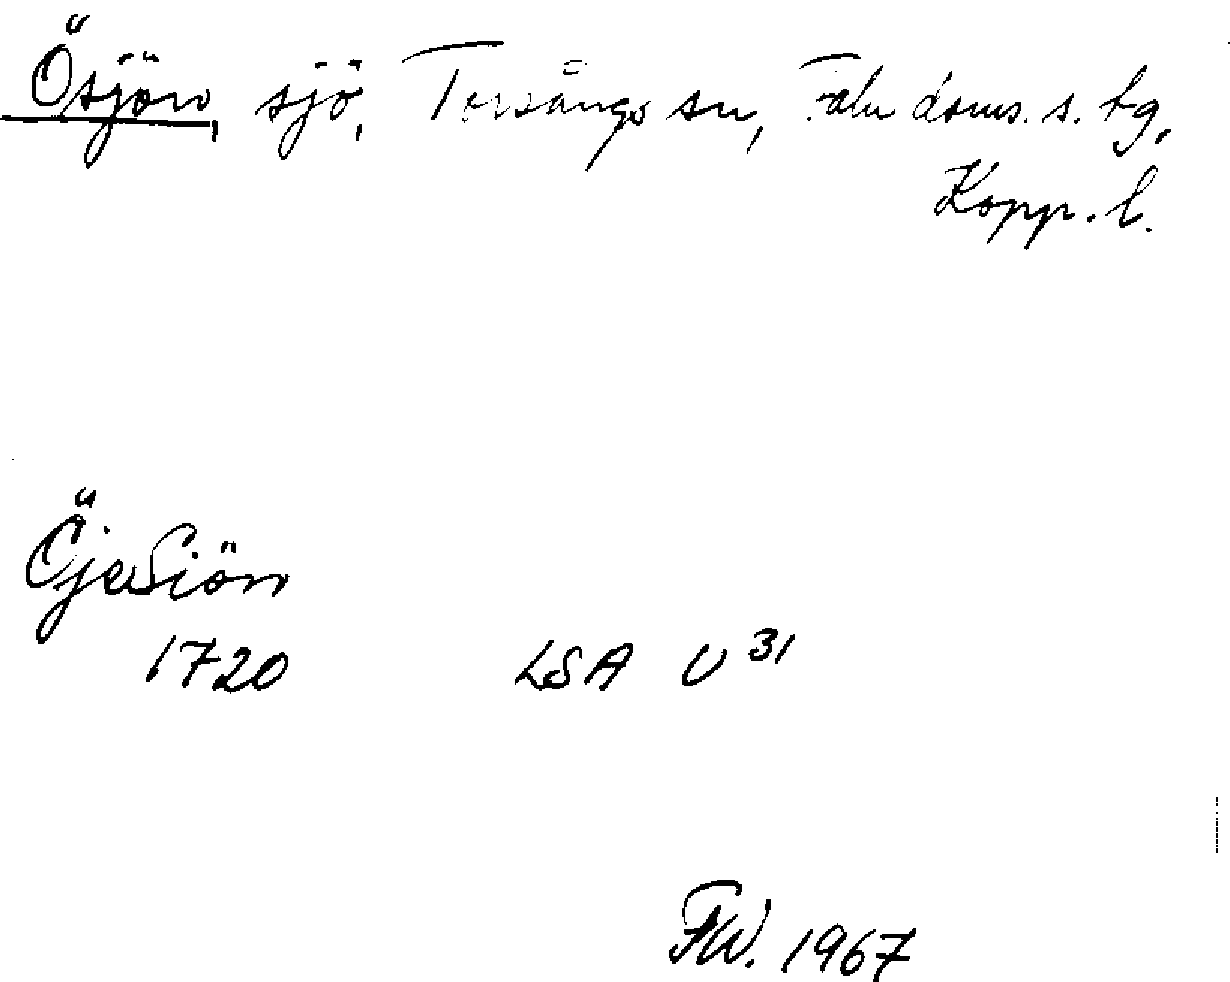 Ösjön, sjö, Torsångs sn, Falu doms. s. tg,
Kopp. l.
ÖjeSiön
1720 LSA U 31
FW. 1967